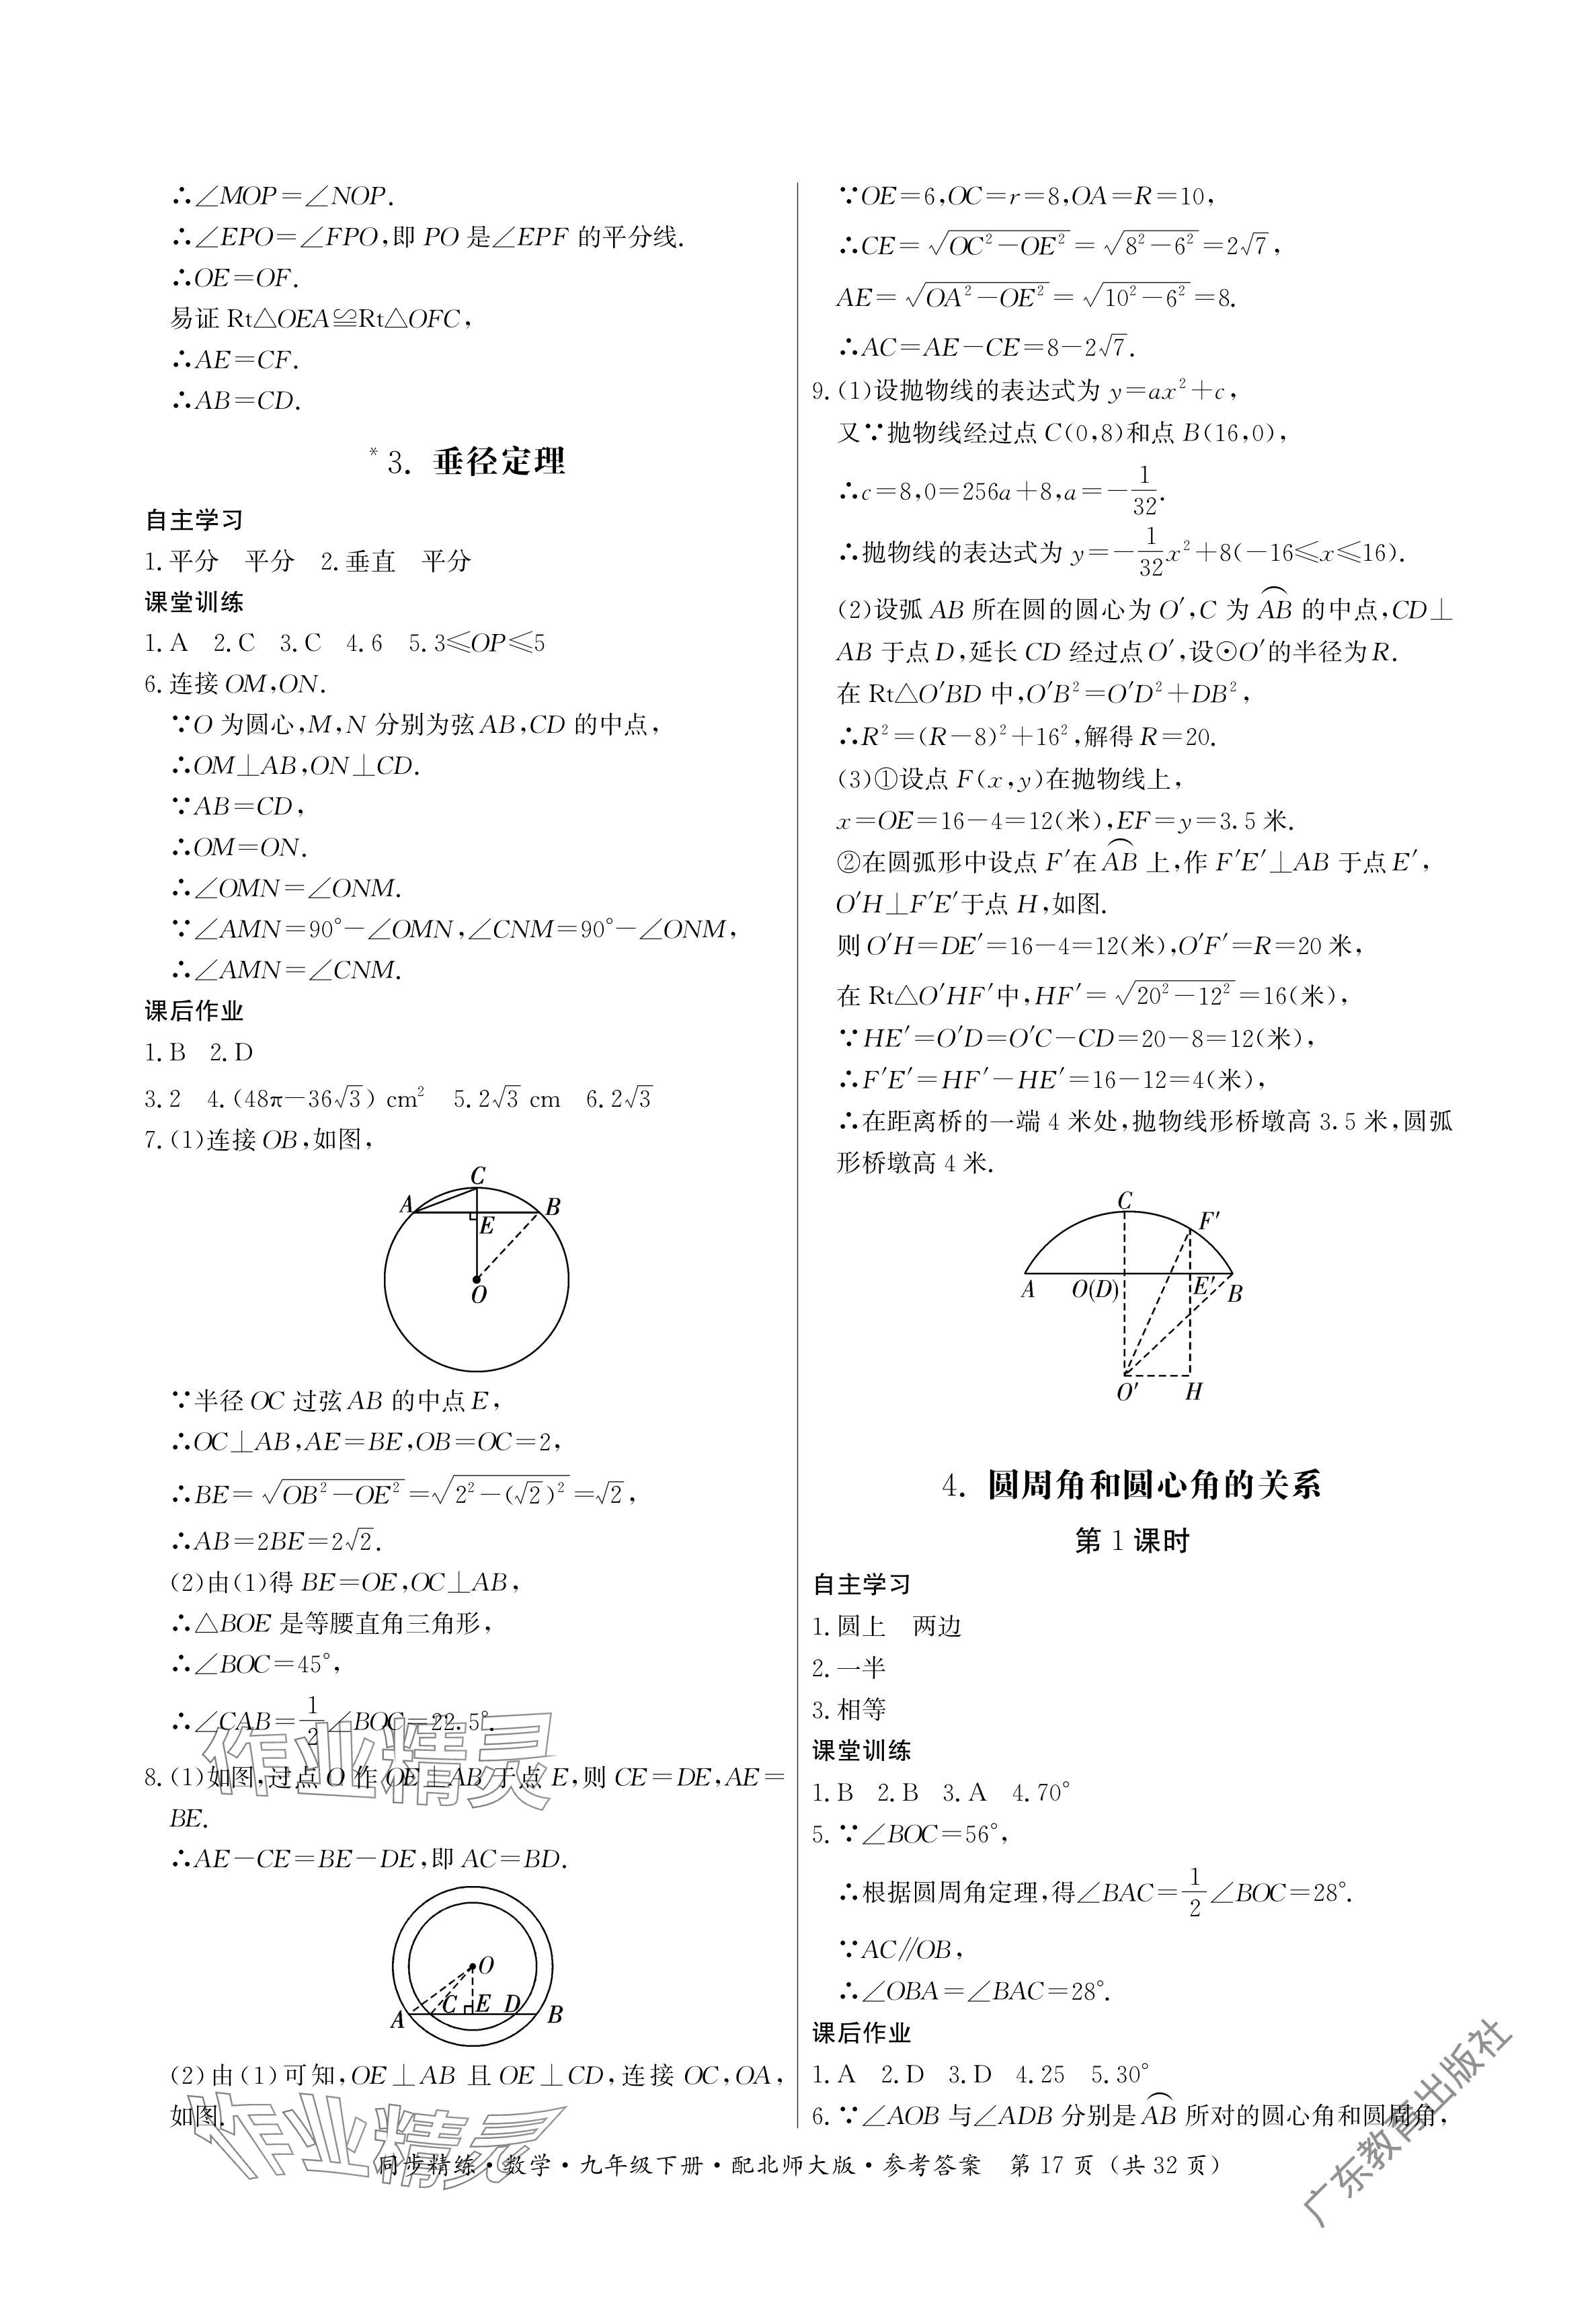 ∴∠MOP=∠NOP.
∴∠EPO=∠FPO,即 PO 是∠EPF 的平分线.
∴OE=OF.
易证 Rt△OEA≌Rt△OFC,
∴AE=CF.
∴AB=CD.
*3. 垂径定理
自主学习
1.平分 平分 2.垂直 平分
课堂训练
1.A 2.C 3.C 4.6 5.3≤OP≤5
6.连接 OM,ON.
∵O 为圆心,M,N 分别为弦 AB,CD 的中点,
∴OM⊥AB,ON⊥CD.
∵AB=CD,
∴OM=ON.
∴∠OMN=∠ONM.
∵∠AMN=90°-∠OMN,∠CNM=90°-∠ONM,
∴∠AMN=∠CNM.
课后作业
1.B 2.D
3.2 4.(48π-36√3) cm² 5.2√3 cm 6.2√3
7.(1)连接 OB,如图,
C
A
B
E
O
∵半径 OC 过弦 AB 的中点 E,
∴OC⊥AB,AE=BE,OB=OC=2,
∴BE=√(OB²-OE²)=√(2²-(√2)²)=√2,
∴AB=2BE=2√2.
(2)由(1)得 BE=OE,OC⊥AB,
∴△BOE 是等腰直角三角形,
∴∠BOC=45°,
∴∠CAB=1/2∠BOC=22.5°.
8.(1)如图,过点 O 作 OE⊥AB 于点 E,则 CE=DE,AE=
BE.
∴AE-CE=BE-DE,即 AC=BD.
O
C E D
A B
(2)由(1)可知,OE⊥AB 且 OE⊥CD,连接 OC,OA,
如图.
∵OE=6,OC=r=8,OA=R=10,
∴CE=√(OC²-OE²)=√(8²-6²)=2√7,
AE=√(OA²-OE²)=√(10²-6²)=8.
∴AC=AE-CE=8-2√7.
9.(1)设抛物线的表达式为 y=ax²+c,
又∵抛物线经过点 C(0,8)和点 B(16,0),
∴c=8,0=256a+8,a=-1/32.
∴抛物线的表达式为 y=-1/32x²+8(-16≤x≤16).
(2)设弧 AB 所在圆的圆心为 O′,C 为 A͡B 的中点,CD⊥
AB 于点 D,延长 CD 经过点 O′,设⊙O′的半径为 R.
在 Rt△O′BD 中,O′B²=O′D²+DB²,
∴R²=(R-8)²+16²,解得 R=20.
(3)①设点 F(x,y)在抛物线上,
x=OE=16-4=12(米),EF=y=3.5 米.
②在圆弧形中设点 F′在 A͡B 上,作 F′E′⊥AB 于点 E′,
O′H⊥F′E′于点 H,如图.
则 O′H=DE′=16-4=12(米),O′F′=R=20 米,
在 Rt△O′HF′中,HF′=√(20²-12²)=16(米),
∵HE′=O′D=O′C-CD=20-8=12(米),
∴F′E′=HF′-HE′=16-12=4(米),
∴在距离桥的一端 4 米处,抛物线形桥墩高 3.5 米,圆弧
形桥墩高 4 米.
C
F′
A O(D) E′ B
O′ H
4. 圆周角和圆心角的关系
第 1 课时
自主学习
1.圆上 两边
2.一半
3.相等
课堂训练
1.B 2.B 3.A 4.70°
5.∵∠BOC=56°,
∴根据圆周角定理,得∠BAC=1/2∠BOC=28°.
∵AC∥OB,
∴∠OBA=∠BAC=28°.
课后作业
1.A 2.D 3.D 4.25 5.30°
6.∵∠AOB 与∠ADB 分别是 A͡B 所对的圆心角和圆周角,
同步精练·数学·九年级下册·配北师大版·参考答案 第 17 页（共 32 页）
作业精灵
作业精灵
广东教育出版社